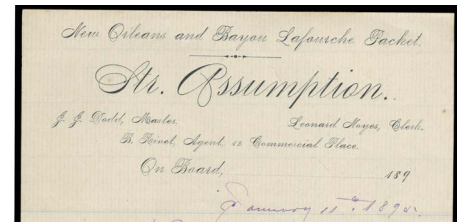 New Orleans and Bayou Lafourche Packet.
Str. Assumption.
J. J. Dodd, Master. Leonard Moyes, Clerk.
B. Rivet, Agent, 12 Commercial Place.
On Board, 189
January 11th 1895.